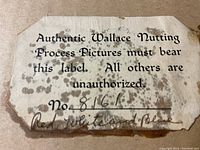 Authentic Wallace Nutting
Process Pictures must bear
this label. All others are
unauthorized.
No. 8161
Red, White and Blue